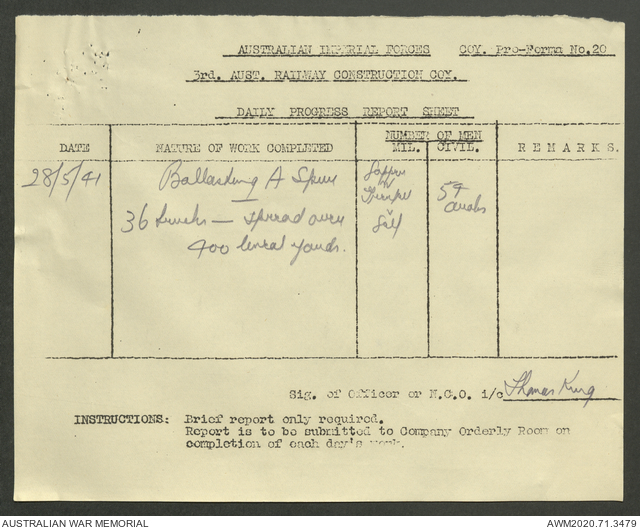 AUSTRALIAN IMPERIAL FORCES COY. Pro-Forma No.20
3rd. AUST. RAILWAY CONSTRUCTION COY.
DAILY PROGRESS REPORT SHEET
NUMBER OF MEN
DATE NATURE OF WORK COMPLETED MIL. CIVIL. REMARKS.
28/5/41 Ballasting A Spur Sapper 54
36 trucks — spread over & Self Arabs
400 lineal yards.
Sig. of Officer or N.C.O. i/c Thomas King
INSTRUCTIONS: Brief report only required.
Report is to be submitted to Company Orderly Room on
completion of each day's work.
AUSTRALIAN WAR MEMORIAL AWM2020.71.3479